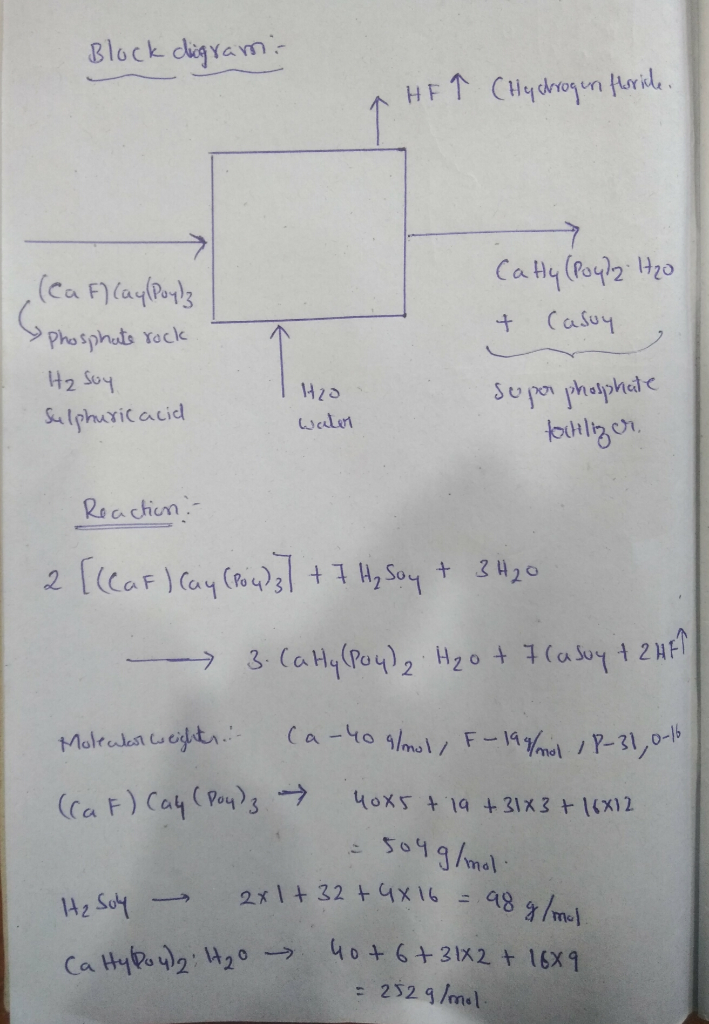 Block digram :-
HF ↑ (Hydrogen floride.
(CaF) Ca4(PO4)3
phosphate rock
H2SO4
Sulphuric acid
H2O
water
CaH4(PO4)2·H2O
+ CaSO4
Super phosphate
fertilizer.
Reaction :-
2 [(CaF) Ca4(PO4)3] + 7 H2SO4 + 3H2O
→ 3·CaH4(PO4)2·H2O + 7CaSO4 + 2HF↑
Molecular weights :- Ca-40 g/mol, F-19 g/mol, P-31, O-16
(CaF) Ca4(PO4)3 → 40x5 + 19 + 31x3 + 16x12
= 504 g/mol.
H2SO4 → 2x1 + 32 + 4x16 = 98 g/mol
CaH4(PO4)2·H2O → 40 + 6 + 31x2 + 16x9
= 252 g/mol.